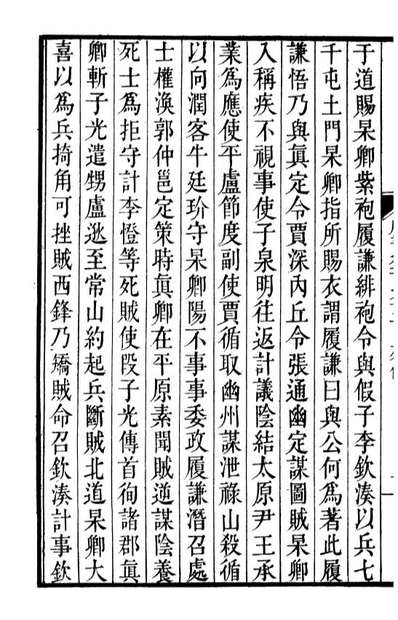 于道賜杲卿紫袍履謙緋袍令與假子李欽湊以兵七
千屯土門杲卿指所賜衣謂履謙曰與公何爲著此履
謙悟乃與真定令賈深內丘令張通幽定謀圖賊杲卿
入稱疾不視事使子泉明往返計議陰結太原尹王承
業爲應使平盧節度副使賈循取幽州謀泄祿山殺循
以向潤客牛廷玠守杲卿陽不事事委政履謙潛召處
士權渙郭仲邕定策時真卿在平原素聞賊逆謀陰養
死士爲拒守計李憕等死賊使段子光傳首徇諸郡真
卿斬子光遣甥盧逖至常山約起兵斷賊北道杲卿大
喜以爲兵掎角可挫賊西鋒乃矯賊命召欽湊計事欽